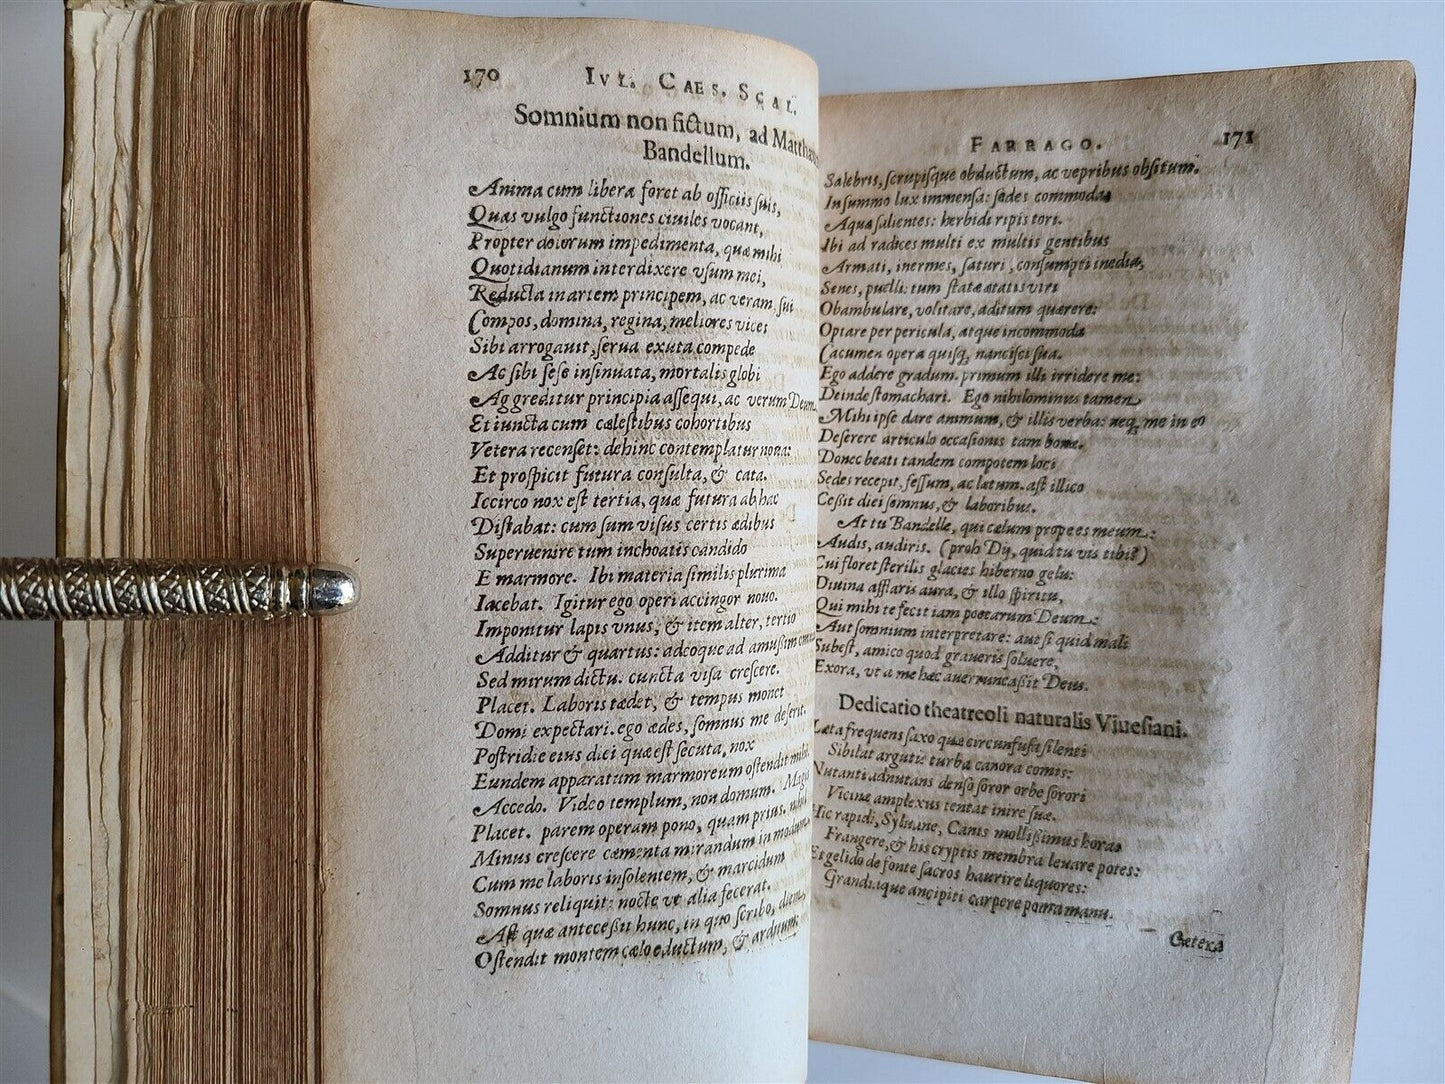 170 IVL. CAES. SCAL.
Somnium non fictum, ad Matthaeum
Bandellum.
Anima cum libera foret ab officiis suis,
Quas vulgo functiones ciuiles vocant,
Propter dolorum impedimenta, quæ mihi
Quotidianum interdixere vsum mei,
Reducta in artem principem, ac veram sui
Compos, domina, regina, meliores vices
Sibi arrogauit, serua exuta compede
Ac sibi sese insinuata, mortalis globi
Aggreditur principia assequi, ac verum Deum,
Et iuncta cum cælestibus cohortibus
Vetera recenset: dehinc contemplatur noua:
Et prospicit futura consulta, & cata.
Iccirco nox est tertia, quæ futura ab hac
Distabat: cum sum visus certis ædibus
Superuenire tum inchoatis candido
E marmore. Ibi materia similis plurima
Iacebat. Igitur ego operi accingor nouo.
Imponitur lapis vnus, & item alter, tertio
Additur & quartus: adeoque ad amußim
Sed mirum dictu. cuncta visa crescere.
Placet. Laboris tædet, & tempus monet
Domi expectari. ego ædes, somnus me deserit.
Postridie eius diei quæ est secuta, nox
Eundem apparatum marmoreum ostendit mihi.
Accedo. Video templum, non domum. Magis
Placet. parem operam pono, quam prius. nihilo
Minus crescere cæmenta mirandum in modum,
Cum me laboris insolentem, & marcidum
Somnus reliquit: nocte vt alia fecerat.
Ast quæ anteceßit hunc, in quo scribo, diem,
Ostendit montem cælo eductum, & arduum:
FARRAGO. 171
Salebris, scrupisque obductum, ac vepribus obsitum.
In summo lux immensa: sedes commodæ
Aquæ salientes: herbidi ripis tori.
Ibi ad radices multi ex multis gentibus
Armati, inermes, saturi, consumpti inedia,
Senes, puelli: tum statæ ætatis viri
Obambulare, volitare, aditum quærere:
Optare per pericula, atque incommoda
Cacumen opera quisq, nancisci sua.
Ego addere gradum. primum illi irridere me:
Deinde stomachari. Ego nihilominus tamen
Mihi ipse dare animum, & illis verba: neq, me in eo
Deserere articulo occasionis tam bonæ.
Donec beati tandem compotem loci
Sedes recepit, fessum, ac lætum. ast illico
Ceßit diei somnus, & laboribus.
At tu Bandelle, qui cælum prope es meum:
Audis, audiris. (proh Dij, quid tu vis tibi?)
Cui floret sterilis glacies hiberno gelu:
Diuina afflaris aura, & illo spiritu,
Qui mihi te fecit iam poetarum Deum:
Aut somnium interpretare: aut si quid mali
Subest, amico quod graueris soluere,
Exora, vt a me hæc auerruncaßit Deus.
Dedicatio theatreoli naturalis Viuesiani.
Læta frequens saxo quæ circunfusa silenti
Sibilat argutiæ turba canora comis:
Nutanti adnutans denso soror orbe sorori
Vicinæ amplexus tentat inire suæ.
Hic rapidi, Syluane, Canis mollißimus horas
Frangere, & his cryptis membra leuare potes:
Et gelido de fonte sacros haurire liquores:
Grandiaque ancipiti carpere poma manu.
Cætera